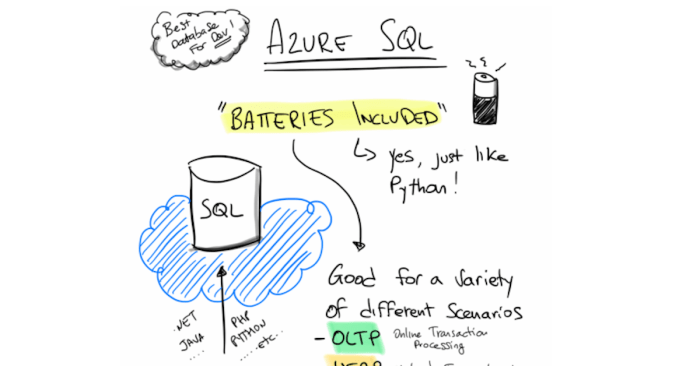 Best
Database
For Dev!
AZURE SQL
"BATTERIES INCLUDED"
yes, just like
Python!
SQL
.NET
JAVA
.....
PHP
PYTHON
.....etc...
Good for a variety
of different Scenarios
- OLTP Online Transaction
Processing